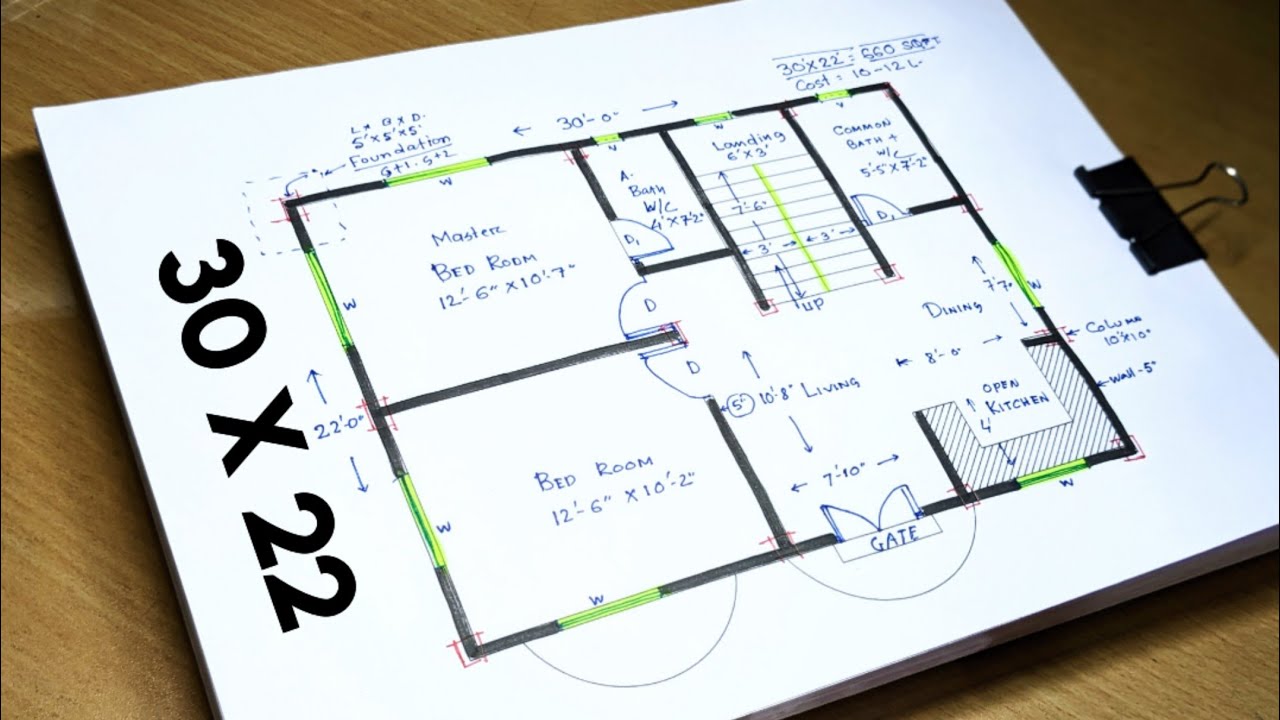 30'X22' = 660 SQFT
Cost = 10-12 L.
L X B X D.
5'X5'X5'
Foundation
G+1. G+2
30'-0"
W
W
W
W
Landing
6'X3'
COMMON
BATH +
W/C
5'-5"X7'-2"
A.
Bath
W/C
4'X7'2"
D1
D1
7'-6"
3'
3'
UP
Master
BED ROOM
12'-6" X 10'-7"
W
D
D
DINING
7'-7"
W
COLUMN
10"X10"
8'-0"
wall-5"
OPEN
KITCHEN
4'
5"
10'-8" LIVING
22'-0"
BED ROOM
12'-6" X 10'-2"
7'-10"
W
W
W
GATE
30 X 22